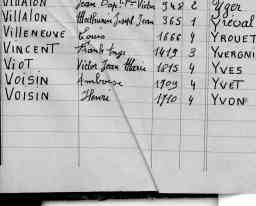 VILLATON Jean Bap.te Victor 948 2 Yger
VILLATON Mathurin Joseph Jean 365 1 YREVAL
VILLENEUVE Louis 1666 4 YROUET
VINCENT Frank Luys 1419 3 YVERGNI
VIOT Victor Jean Marie 1815 4 YVES
VOISIN Ambroise 1709 4 YVET
VOISIN Henri 1710 4 YVON